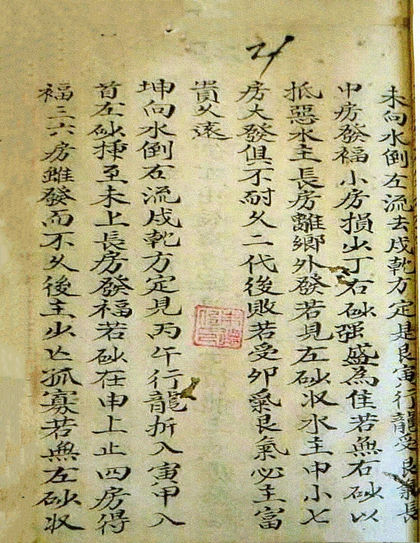 未向水倒左流去戍乹方定是艮寅行龍受艮氣長
中房發福小房損少丁右砂强盛為佳若無右砂以
抵惡水主長房離鄉外發若見左砂收水主中小七
房大發俱不耐久二代後敗若受卯氣艮氣必主富
貴久遠
坤向水倒右流戍乹方定見丙午行龍折入寅甲入
首左砂揷至未上長房發福若砂在申上止四房得
福三六房雖發而不久後主少亡孤寡若無左砂收